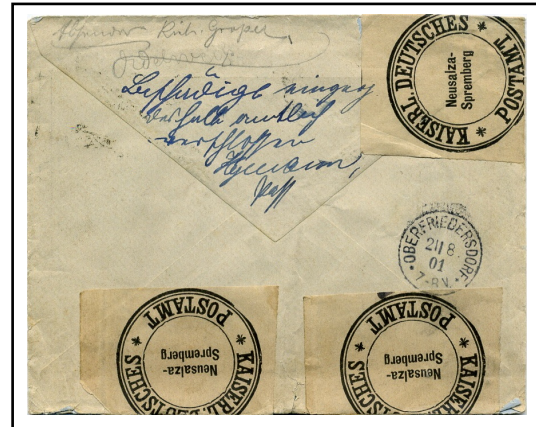 Absender Rich. Gropel
Beschädigt eingeg
deshalb amtlich
verschlossen
KAISERL. DEUTSCHES * POSTAMT *
Neusalza-
Spremberg
OBERFRIEDERSDORF
8
01
7-8N.
KAISERL. DEUTSCHES * POSTAMT *
Neusalza-
Spremberg
KAISERL. DEUTSCHES * POSTAMT *
Neusalza-
Spremberg